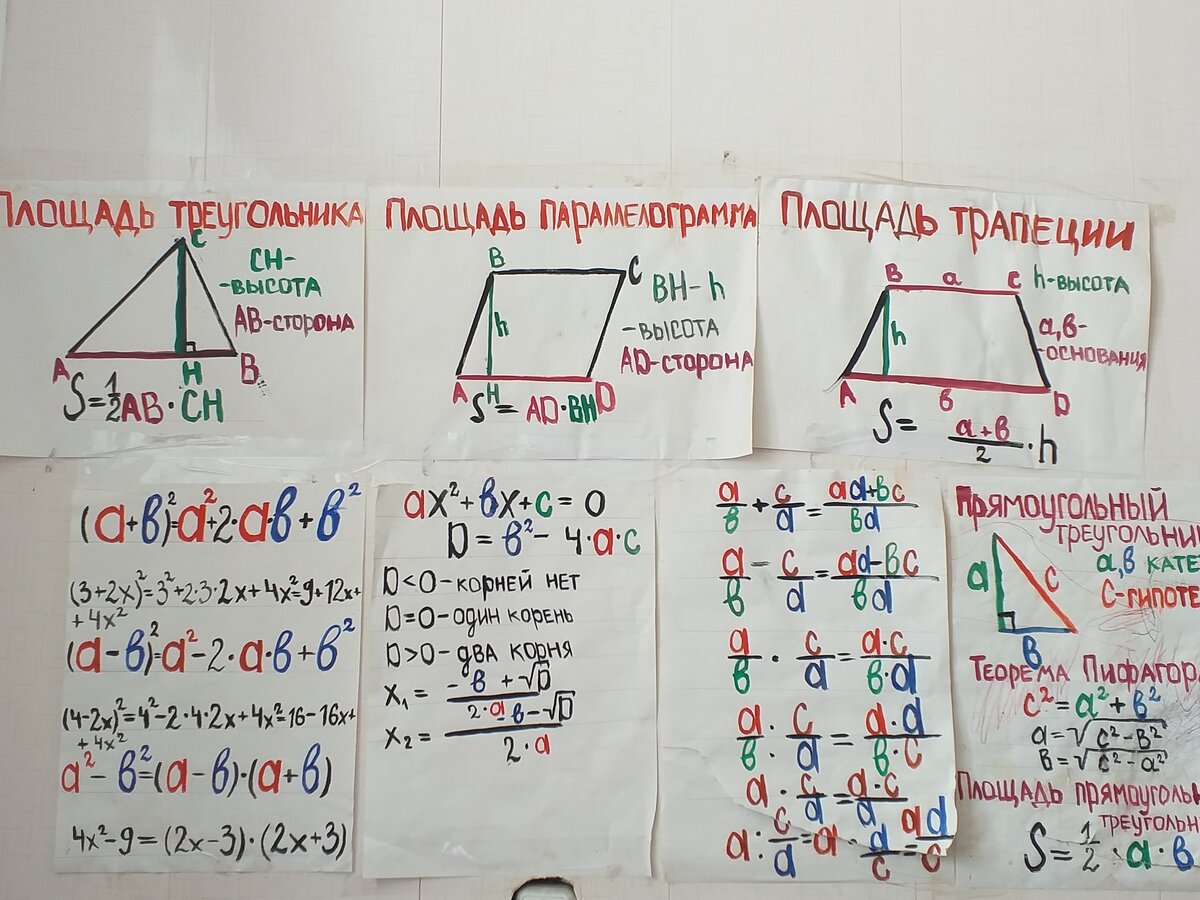 ПЛОЩАДЬ ТРЕУГОЛЬНИКА
C
CH-
-ВЫСОТА
AB-сторона
A
H
B
S=1/2AB·CH
ПЛОЩАДЬ ПАРАЛЛЕЛОГРАММА
B
C
h
BH-h
-ВЫСОТА
AD-сторона
A
H
D
S=AD·BH
ПЛОЩАДЬ ТРАПЕЦИИ
B
a
C
h-высота
h
a,в-
-основания
A
в
D
S= (a+в)/2·h
(a+в)²=a²+2·aв+в²
(3+2x)²=3²+2·3·2x+4x²=9+12x+
+4x²
(a-в)²=a²-2·a·в+в²
(4-2x)²=4²-2·4·2x+4x²=16-16x+
+4x²
a²-в²=(a-в)·(a+в)
4x²-9=(2x-3)·(2x+3)
ax²+вx+c=0
D=в²-4·a·c
D<0-корней нет
D=0-один корень
D>0-два корня
x₁=(-в+√D)/(2·a)
x₂=(-в-√D)/(2·a)
a/в+c/d=(ad+вc)/(вd)
a/в-c/d=(ad-вc)/(вd)
a/в·c/d=(a·c)/(в·d)
a/в·c/d=(a·d)/(в·c)
a·c/d=(a·c)/d
a:c/d=a·d/c=ad/c
ПРЯМОУГОЛЬНЫЙ
ТРЕУГОЛЬНИ
a
c
a,в КАТЕ
C-гипоте
в
ТЕОРЕМА ПИФАГОРА
c²=a²+в²
a=√(c²-в²)
в=√(c²-a²)
Площадь прямоуголь
треугольн
S=1/2·a·в